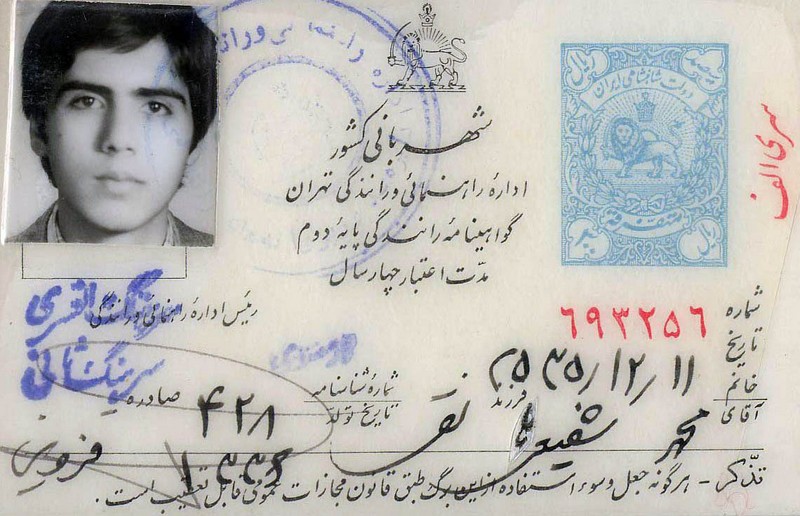 دولت شاهنشاهی ایران
ریال
سری الف
شهربانی کشور
ادارهٔ راهنمائی و رانندگی تهران
گواهینامه رانندگی پایهٔ دوم
مدّت اعتبار چهار سال
رئیس ادارهٔ راهنمائی و رانندگی
سرهنگ
شماره ۶۹۳۲۵۶
تاریخ ۲۵۳۵/۱۲/۱۱
خانم
آقای محمد شفیعی فرزند نقی
شمارهٔ شناسنامه ۴۲۸ صادره
تاریخ تولد ۱۳۳۶
تذکر - هرگونه جعل و سوء استفاده از این برگ طبق قانون مجازات عمومی قابل تعقیب است.